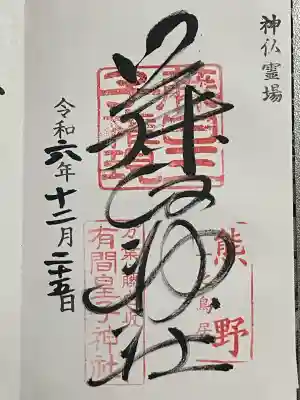 神仏霊場
藤白神社
熊野
鳥居
有間皇子神社
令和六年十二月二十五日